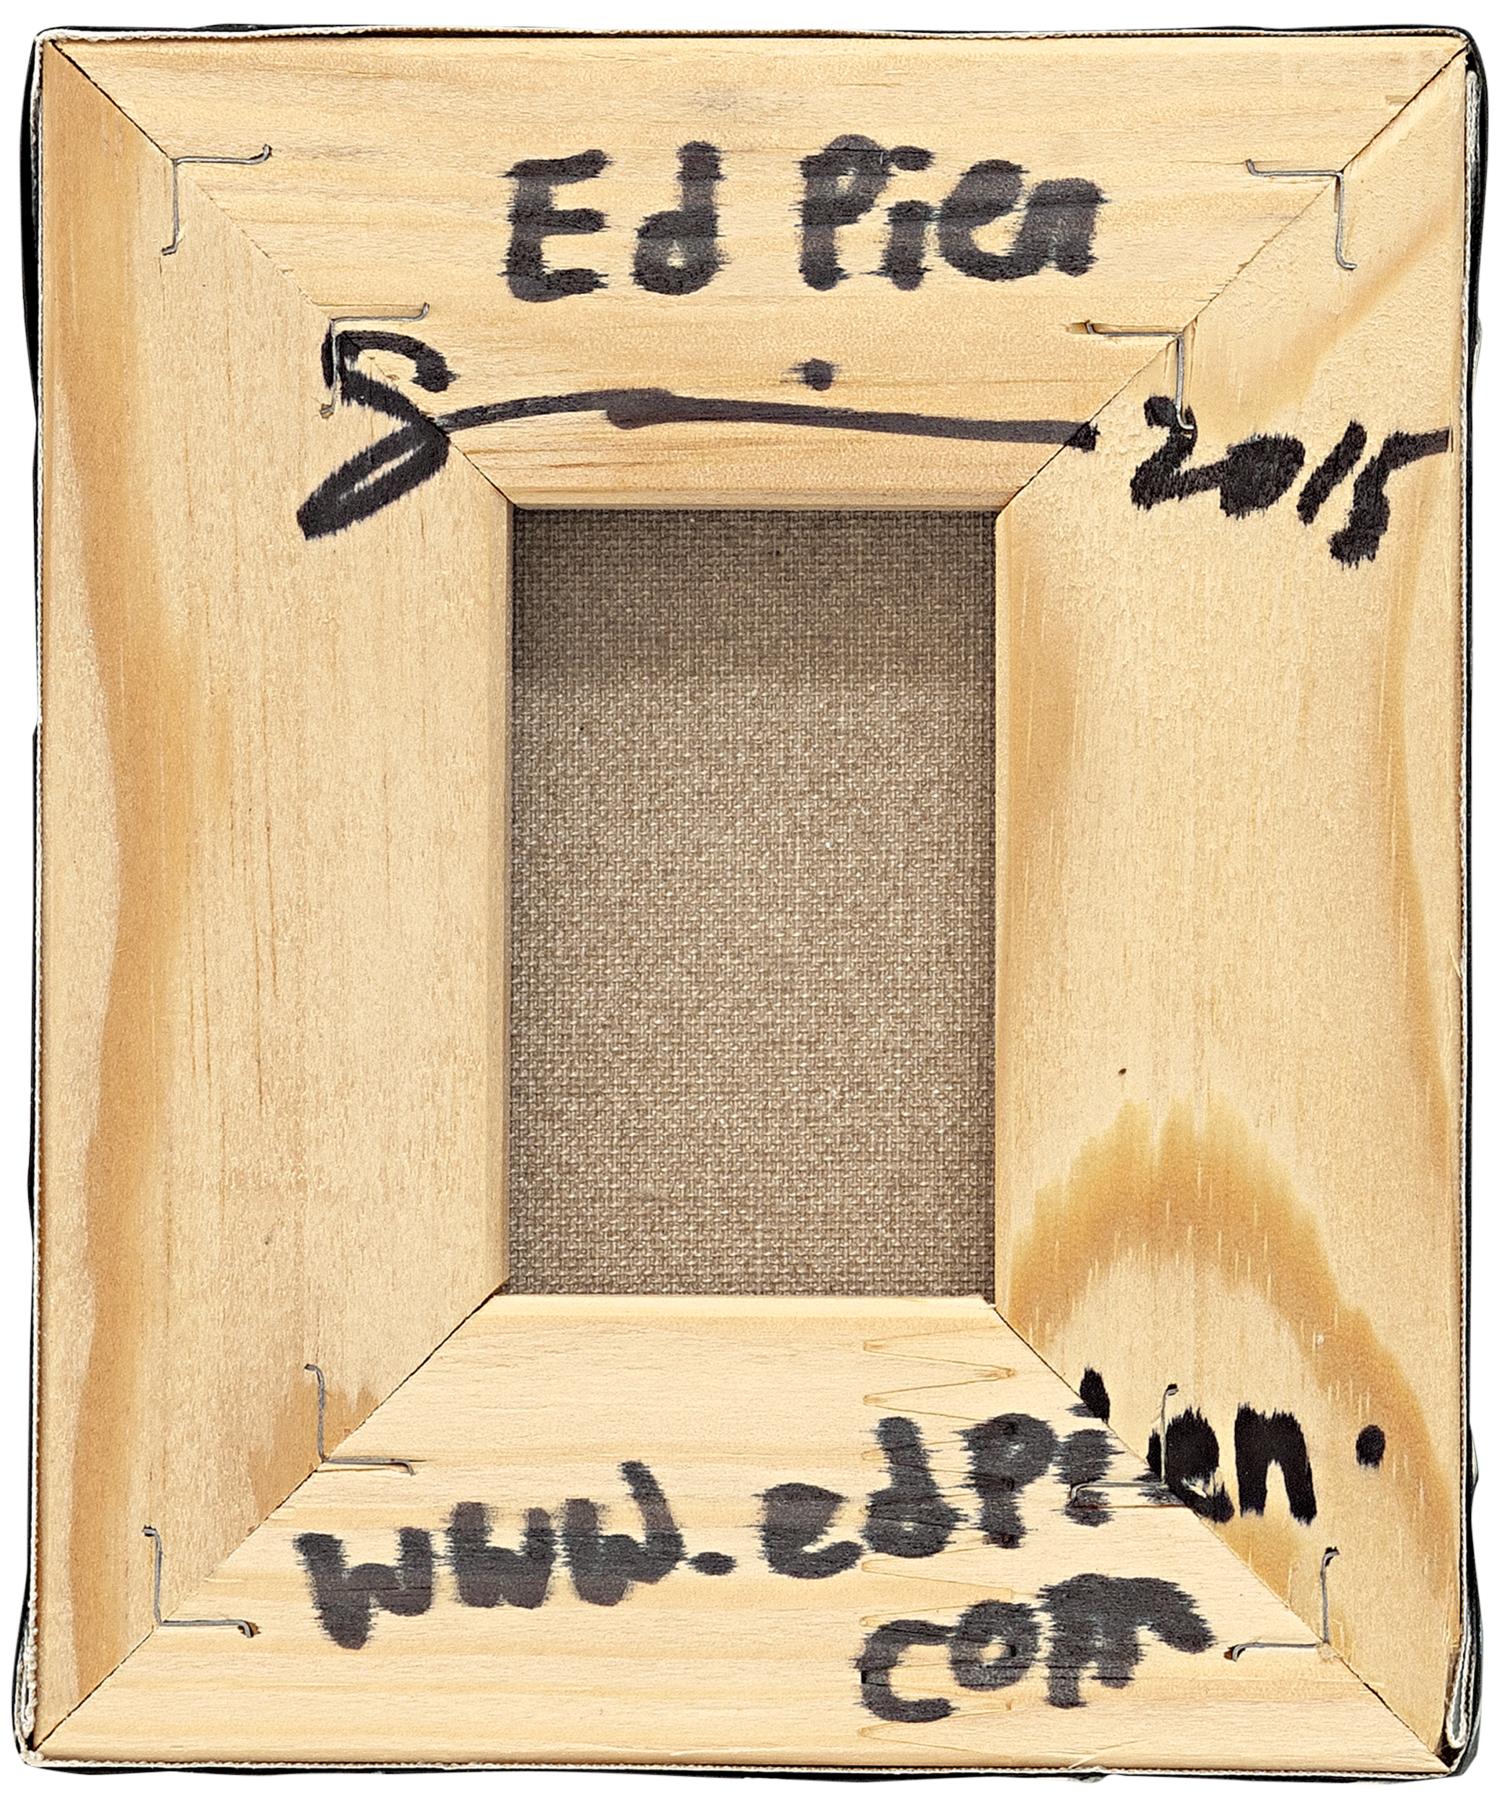 Ed Pien
2015
www.edpien.
com